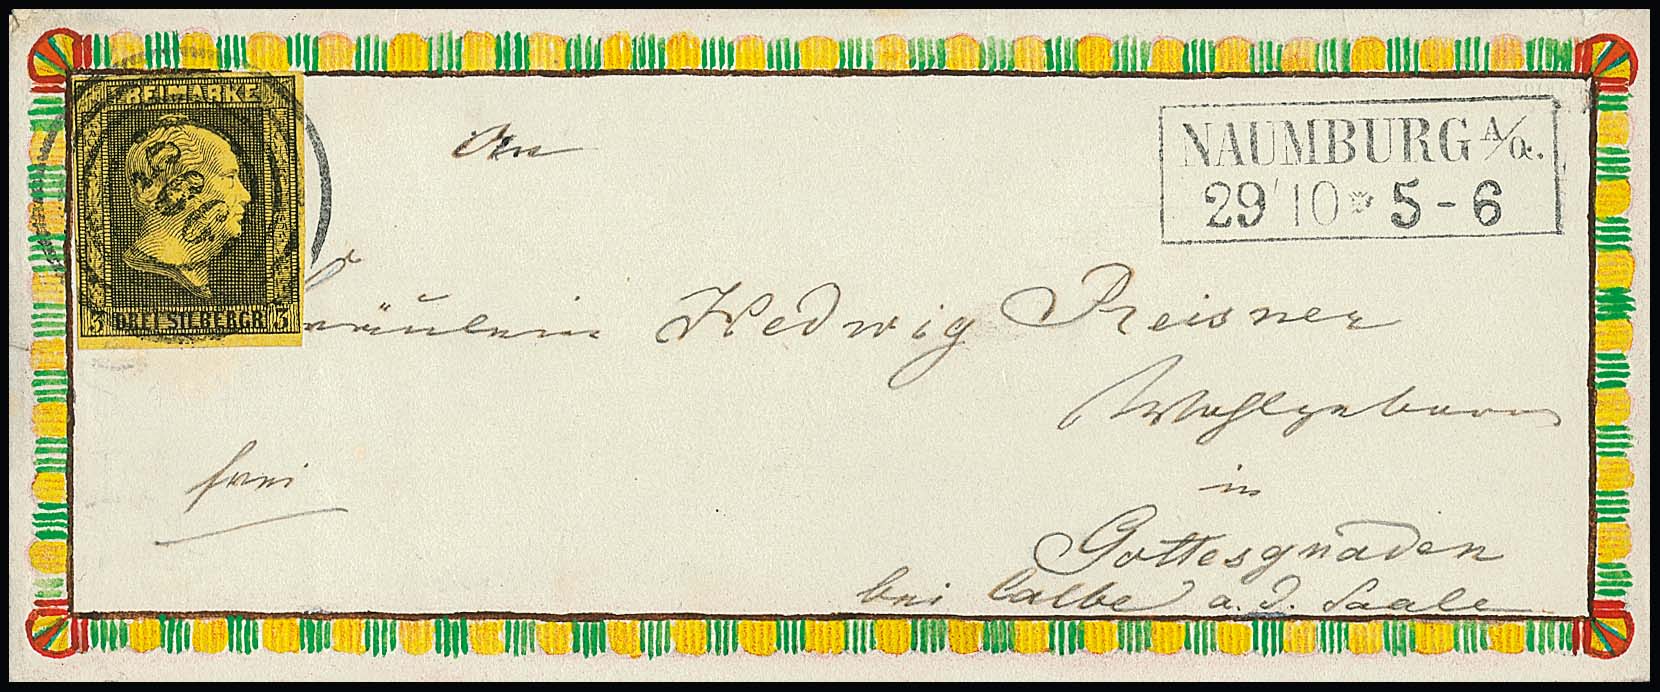 FREIMARKE
3 DREI SILBERGR. 3
NAUMBURG A/Q.
29 10 * 5-6
An
Fräulein Hedwig Reisner
Wohlgeboren
in
frei
Gottesgnaden
bei Calbe a. d. Saale